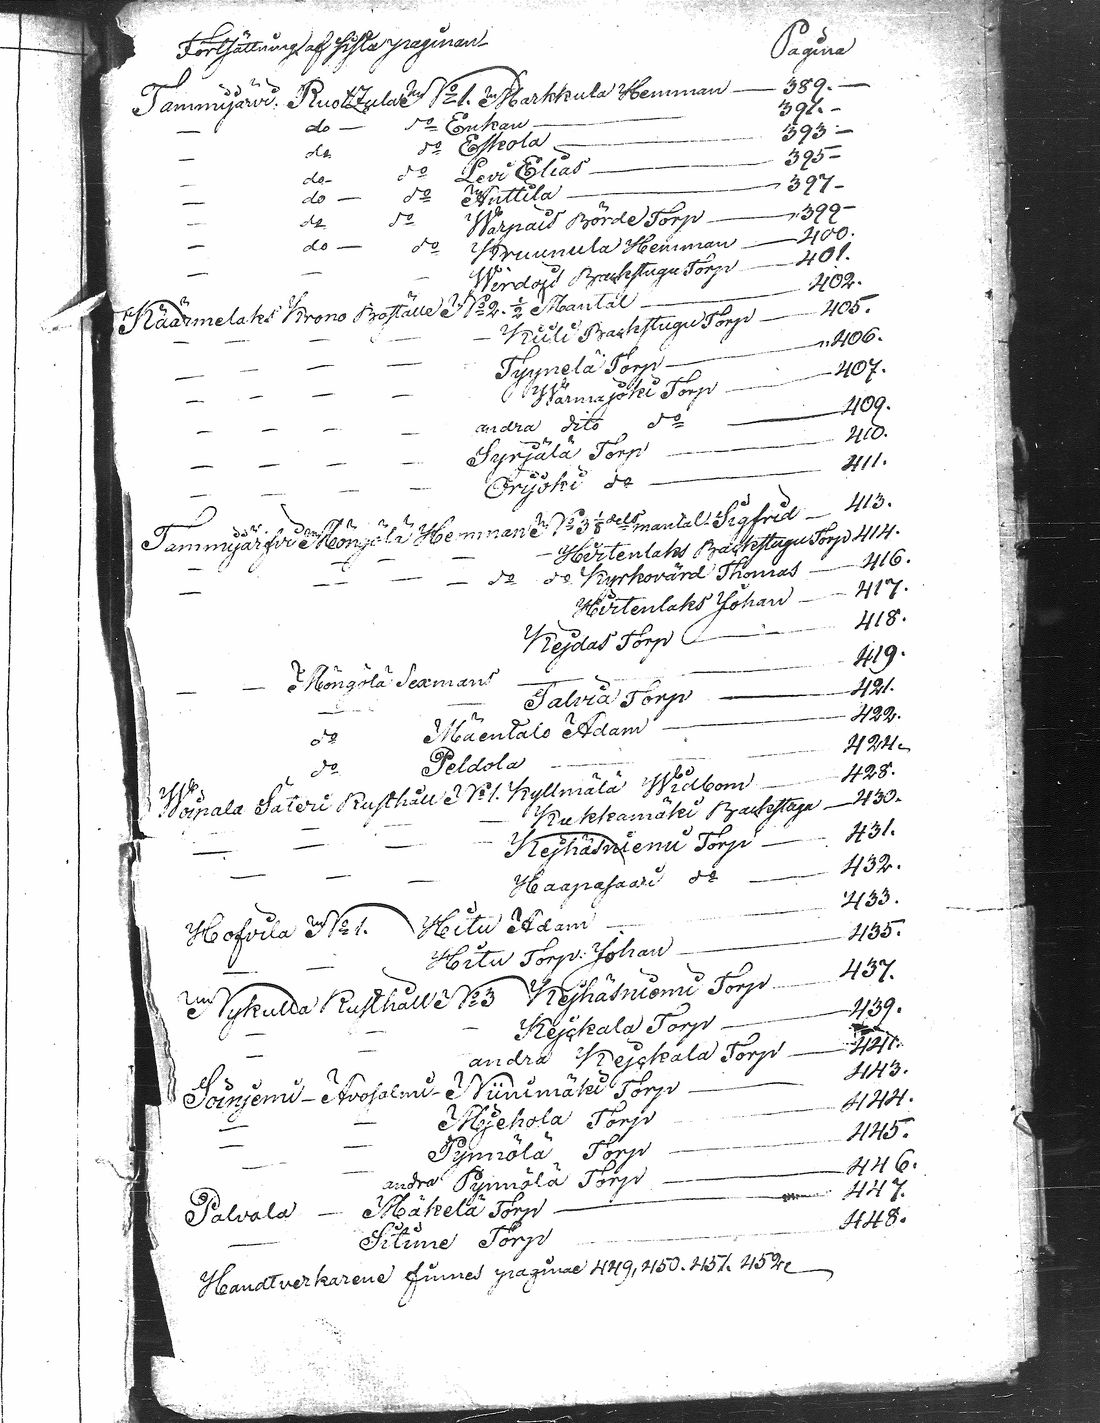 Fortsättning af sista paginan Pagina
Tammijärvi. Ruotzula No 1. Markkula Hemman — 389. —
— do — do Enkau — 391. —
— do do Eskola 393 —
— do- do Levi Elias — 395 —
— do — do Anttila — 397 —
— do do Warpais Börde Torp — 399 —
— do — do Kruunula Hemman — 400.
— — — Wirdois Backstugu Torp — 401.
Käärmelaks Krono Boställe No 2. 1/2 Mantal — 402.
— — — — — Kuli Backstugu Torp — 405.
— — — — Tyynelä Torp — 406.
— — — — Warmajoki Torp — 407.
— — — — andra dito do — 409.
— — — — Syrjälä Torp — 410.
— — — — Orijoki do — 411.
Tammijärfvi Möngölä Hemman No 3 1/8 dels mantal Sigfrid — 413.
— — — — Hirtenlaks Backstugu Torp 414.
— — — — do do Kyrkovärd Thomas — 416.
— Hirtenlaks Johan — 417.
Kejdas Torp — 418.
— — Möngölä Sexmans — 419.
— — Talvia Torp — 421.
do Mäentalo Adam — 422.
do Peldola — 424.
Woipala Säteri Rusthåll No 1. Kyllmälä Widbom — 428.
— — — — Kukkamäki Backstuga — 430.
— — — Kejhäsniemi Torp — 431.
— — — Haapasaari do — 432.
Hofvila No 1. Hitu Adam — 433.
— — Hitu Torp. Johan — 435.
Nykulla Rusthåll No 3 Kejhäsniemi Torp — 437.
— — — Kejckala Torp — 439.
— — andra Kejckala Torp — 441.
Soinjemi — Avosalmi — Niinimäki Torp — 443.
— — Mjehola Torp — 444.
— — Pynnölä Torp — 445.
— — andra Pynnölä Torp — 446.
Palvala — Mäkelä Torp — 447.
— Sitine Torp 448.
Handtverkarene finnes paginae 449, 450. 451. 452